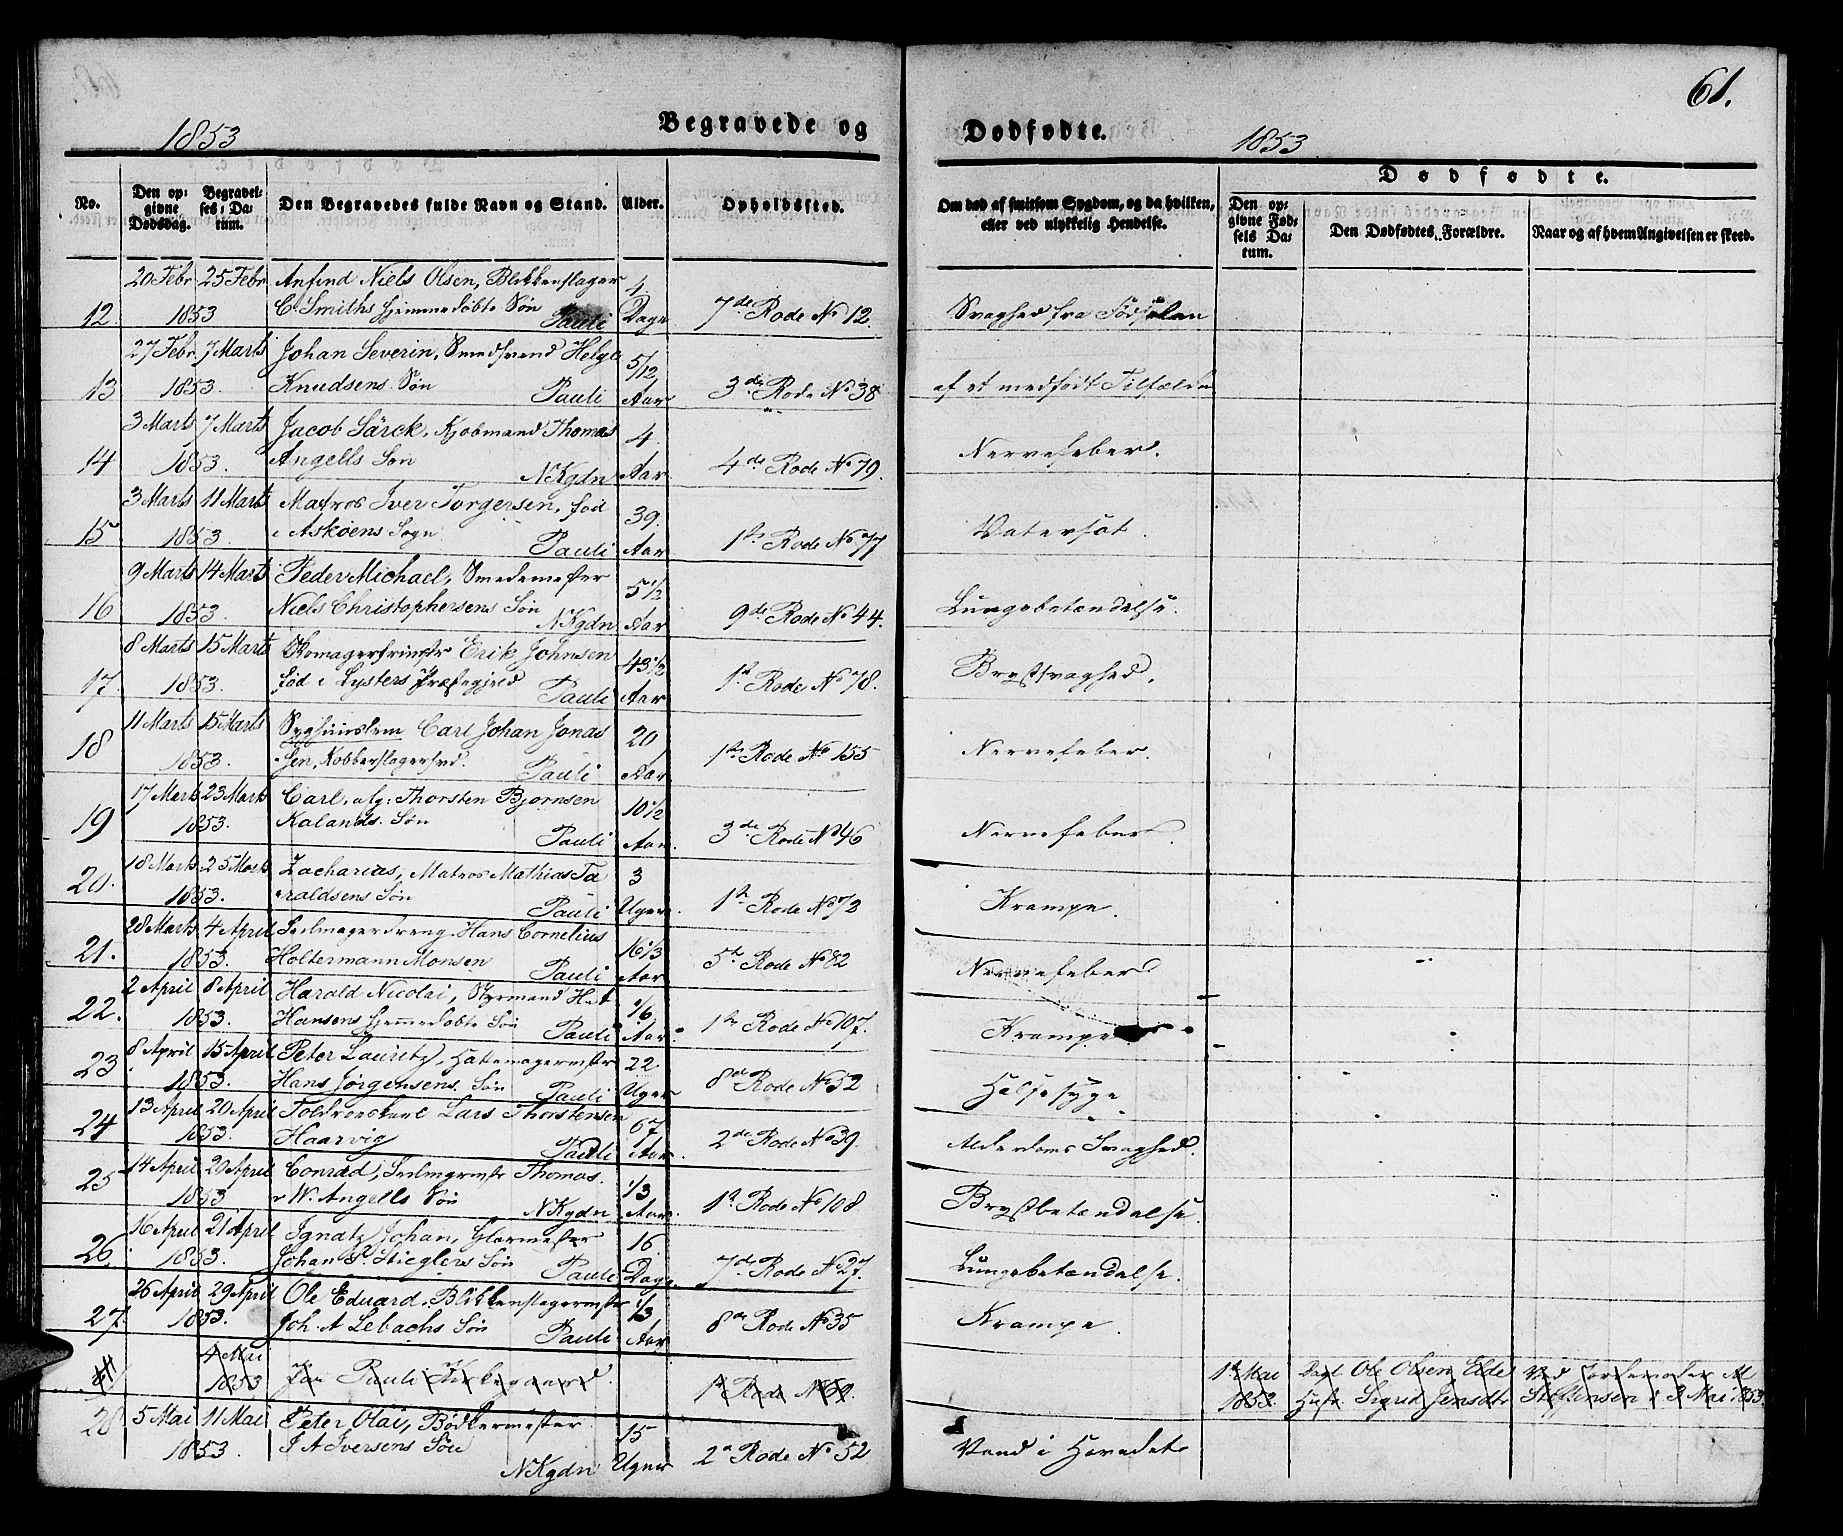 61.
1853 Begravede og Dødfødte. 1853
Dødfødte.
No. Den opgivne Dødsdag. Begravelses-Datum. Den Begravedes fulde Navn og Stand. Alder. Opholdssted.
Om død af smitsom Sygdom, og da hvilken, eller ved ulykkelig Hendelse. Den opgivne Fødsels Datum. Den Dødfødtes Forældre. Naar og af hvem Angivelsen er skeed.
20 Febr 25 Febr Anfind Niels Olsen, Blikkenslager 4
12. 1853 C. Smiths hjemmedøbte Søn Pauli Dage 7de Rode No 12. Svaghed fra Fødselen
27 Febr 7 Marts Johan Severin, Smedsvend Helge 5/12
13 1853. Knudsens Søn Pauli Aar 3de Rode No 38 af et medfødt Tilfælde
3 Marts 7 Marts Jacob Särck, Kjøbmand Thomas 4
14 1853. Angells Søn NKgdn Aar 4de Rode No 79. Nervefeber.
3 Marts 11 Marts Matros Iver Torgersen, fød 39.
15 1853. i Askøens Sogn Pauli Aar 1ste Rode No 77 Vatersot.
9 Marts 14 Marts Peder Michael, Smedemester 5 1/2
16 1853. Niels Christophersens Søn NKgdn Aar 9de Rode No 44. Lungebetændelse.
8 Marts 15 Marts Skomagersvend Erik Johnsen 43 1/2
17. 1853. fød i Lysters Præstegjeld Pauli Aar 1st Rode No 78. Brystsvaghed.
11 Marts 15 Marts Carl Johan Jonas 20
18 1853. sen, Kobberslagersvd. Pauli Aar 1ste Rode No 155 Nervefeber.
17 Marts 23 Marts Carl, afg: Thorsten Bjørnsen 10 1/2
19 1853. Kalands Søn Pauli Aar. 3de Rode No 46 Nervefeber.
18 Marts 25 Marts Zacharias, Matros Mathias Ta 3
20. 1853. raldsens Søn Pauli Uger. 1st Rode No 72 Krampe.
28 Marts 4 April Seilmagerdreng Hans Cornelius 16 1/3
21. 1853. Holtermann Monsen Pauli Aar 5te Rode No 82 Nervefeber
2 April 8 April Harald Nicolai, Styrmand H 1/6
22. 1853. Hansens hjemmedøbte Søn Pauli Aar. 1ste Rode No 107. Krampe
8 April 15 April Peter Lauritz, Hattemagermster 22
23 1853. Hans Jørgensens Søn Pauli Uger 8de Rode No 52 Halssyge
13 April 20 April Toldroerskarl Lars Thorstensen 67
24 1853. Haarvig Pauli Aar. 2de Rode No 39. Alderdoms Svaghed.
14 April 20 April Conrad, Seilmgrmstr Thomas. 1/3
25 1853 W. Angells Søn NKgdn Aar. 1st Rode No 108 Brystbetændelse.
16 April 21 April Ignatz Johan, Glarmester 16
26. 1853. Johan P. Stieglers Søn Pauli Dage. 7de Rode No 27. Lungebetændelse.
26 April 29 April Ole Eduard, Blikkenslagermster 1/3
27. 1853. Joh. A Lebachs Søn Pauli Aar 8de Rode No 35 Krampe.
4 Mai 1ste Mai Ole Olsen Ved Jordemoder
1853 Pauli Kirkegaard. 1st Rode 1853. Hust. Sigrid Jensdtr Steffensen 3 Mai 1853.
28. 5 Mai 11 Mai Peter Olai, Bødkermester 15
1853. I A Iversens Søn NKgdn Uger 2de Rode No 52 Vand i Hovedet